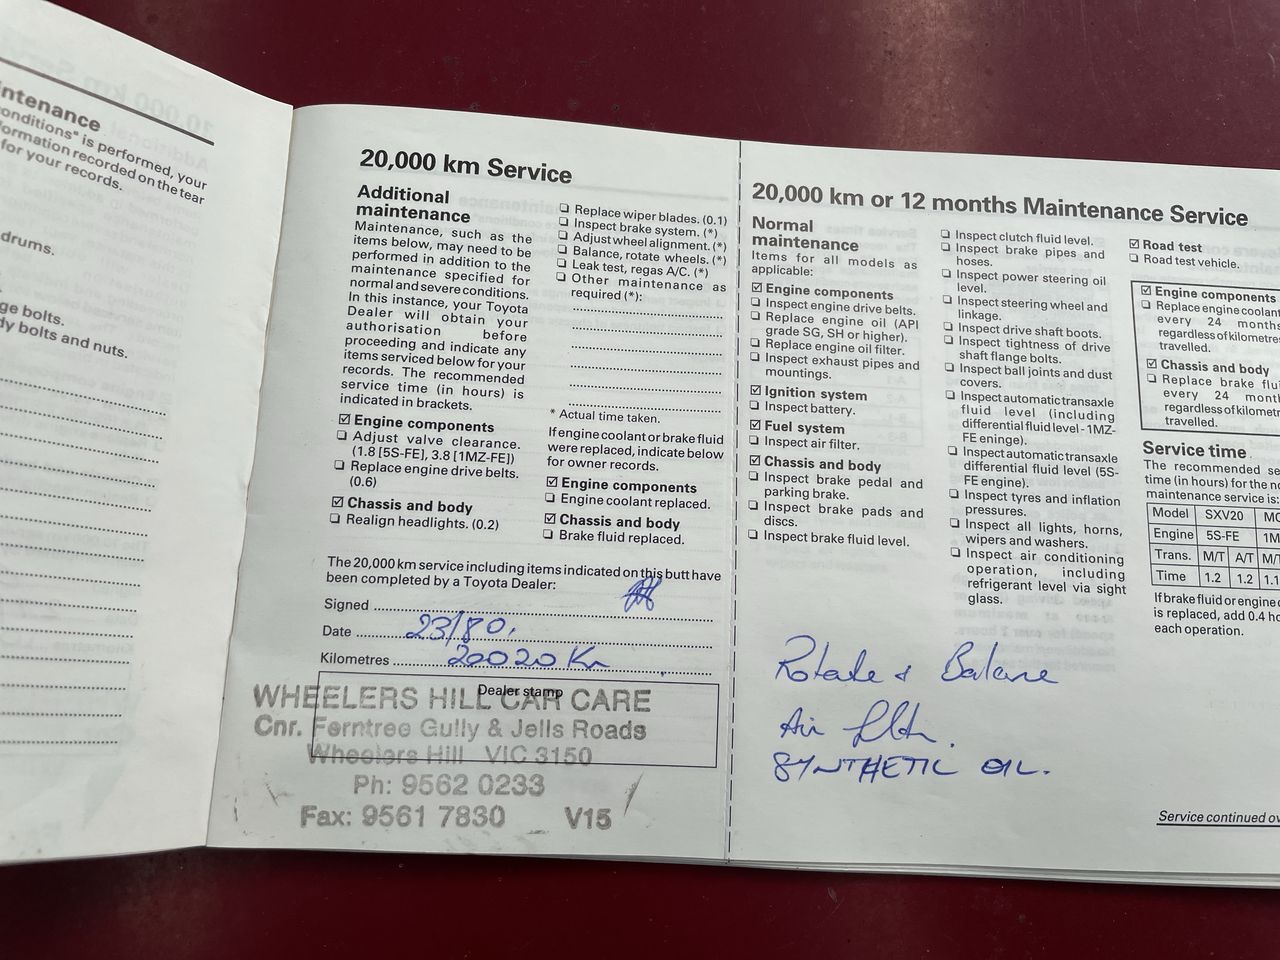 intenance
onditions* is performed, your
formation recorded on the tear
for your records.
drums.
ge bolts.
dy bolts and nuts.
20,000 km Service
Additional
maintenance
Maintenance, such as the
items below, may need to be
performed in addition to the
maintenance specified for
normal and severe conditions.
In this instance, your Toyota
Dealer will obtain your
authorisation before
proceeding and indicate any
items serviced below for your
records. The recommended
service time (in hours) is
indicated in brackets.
☑ Engine components
❏ Adjust valve clearance.
(1.8 [5S-FE], 3.8 [1MZ-FE])
❏ Replace engine drive belts.
(0.6)
☑ Chassis and body
❏ Realign headlights. (0.2)
❏ Replace wiper blades. (0.1)
❏ Inspect brake system. (*)
❏ Adjust wheel alignment. (*)
❏ Balance, rotate wheels. (*)
❏ Leak test, regas A/C. (*)
❏ Other maintenance as
required (*):
* Actual time taken.
If engine coolant or brake fluid
were replaced, indicate below
for owner records.
☑ Engine components
❏ Engine coolant replaced.
☑ Chassis and body
❏ Brake fluid replaced.
The 20,000 km service including items indicated on this butt have
been completed by a Toyota Dealer:
Signed
Date 23/80.
Kilometres 20020 Km
Dealer stamp
WHEELERS HILL CAR CARE
Cnr. Ferntree Gully & Jells Roads
Wheelers Hill VIC 3150
Ph: 9562 0233
Fax: 9561 7830 V15
20,000 km or 12 months Maintenance Service
Normal
maintenance
Items for all models as
applicable:
☑ Engine components
❏ Inspect engine drive belts.
❏ Replace engine oil (API
grade SG, SH or higher).
❏ Replace engine oil filter.
❏ Inspect exhaust pipes and
mountings.
☑ Ignition system
❏ Inspect battery.
☑ Fuel system
❏ Inspect air filter.
☑ Chassis and body
❏ Inspect brake pedal and
parking brake.
❏ Inspect brake pads and
discs.
❏ Inspect brake fluid level.
❏ Inspect clutch fluid level.
❏ Inspect brake pipes and
hoses.
❏ Inspect power steering oil
level.
❏ Inspect steering wheel and
linkage.
❏ Inspect drive shaft boots.
❏ Inspect tightness of drive
shaft flange bolts.
❏ Inspect ball joints and dust
covers.
❏ Inspect automatic transaxle
fluid level (including
differential fluid level - 1MZ-
FE eninge).
❏ Inspect automatic transaxle
differential fluid level (5S-
FE engine).
❏ Inspect tyres and inflation
pressures.
❏ Inspect all lights, horns,
wipers and washers.
❏ Inspect air conditioning
operation, including
refrigerant level via sight
glass.
☑ Road test
❏ Road test vehicle.
☑ Engine components
❏ Replace engine coolant
every 24 months
regardless of kilometres
travelled.
☑ Chassis and body
❏ Replace brake flui
every 24 month
regardless of kilomet
travelled.
Service time
The recommended se
time (in hours) for the no
maintenance service is:
Model SXV20 MC
Engine 5S-FE 1M
Trans. M/T A/T M/
Time 1.2 1.2 1.1
If brake fluid or engine c
is replaced, add 0.4 ho
each operation.
Rotate & Balance
Air filter.
SYNTHETIC OIL.
Service continued ov